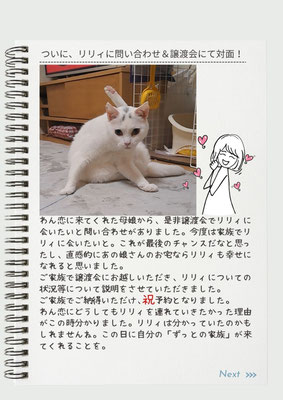 ついに、リリィに問い合わせ＆譲渡会にて対面！
わん恋に来てくれた母娘から、是非譲渡会でリリィに
会いたいと問い合わせがありました。今度は家族でリ
リィに会いたいと。これが最後のチャンスだなと思っ
たし、直感的にあの娘さんのお宅ならリリィも幸せに
なれると思いました。
ご家族で譲渡会にお越しいただき、リリィについての
状況等について説明をさせていただきました。
ご家族でご納得いただけ、祝予約となりました。
わん恋にどうしてもリリィを連れていきたかった理由
がこの時分かりました。リリィは分かっていたのかも
しれませんね。この日に自分の「ずっとの家族」が来
てくれることを。
Next >>>